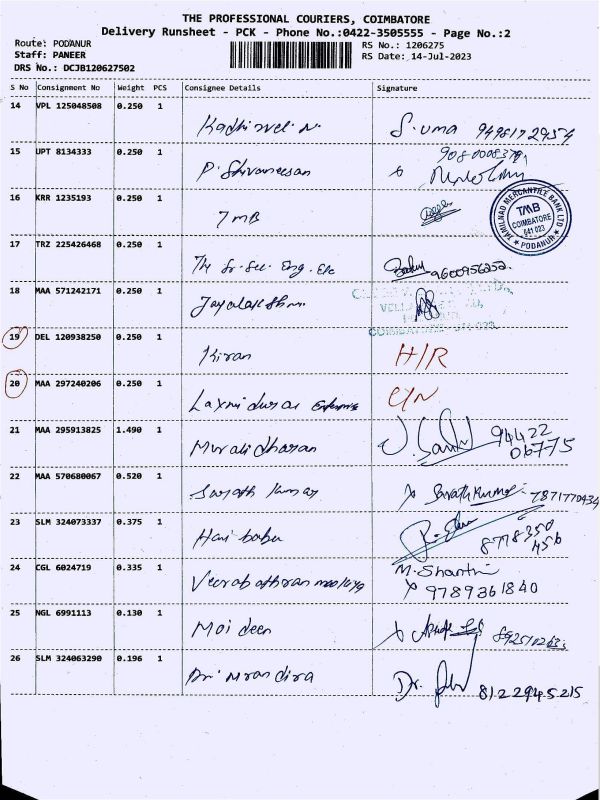 THE PROFESSIONAL COURIERS, COIMBATORE
Delivery Runsheet - PCK - Phone No.:0422-3505555 - Page No.:2
Route: PODANUR
RS No.: 1206275
Staff: PANEER
RS Date: 14-Jul-2023
DRS No.: DCJB120627502
S No Consignment No Weight PCS Consignee Details Signature
14 VPL 125048508 0.250 1 S.uma
15 UPT 8134333 0.250 1 P. Shivaneesan
16 KRR 1235193 0.250 1 TMB
TAMILNAD MERCANTILE BANK LTD
TMB
COIMBATORE
641 023
PODANUR
17 TRZ 225426468 0.250 1 9600956252.
18 MAA 571242171 0.250 1
19 DEL 120938250 0.250 1 Kiran H/R
20 MAA 297240206 0.250 1 Laxmi durai
21 MAA 295913825 1.490 1 Muralidharan 94422
06775
22 MAA 570680067 0.520 1 Sarath kumar Sarathkumar 7871770434
23 SLM 324073337 0.375 1 Hari babu 8778350
456
24 CGL 6024719 0.335 1 M.Shanthi
9789361840
25 NGL 6991113 0.130 1 Moideen
26 SLM 324063290 0.196 1 Dr. 8122945215